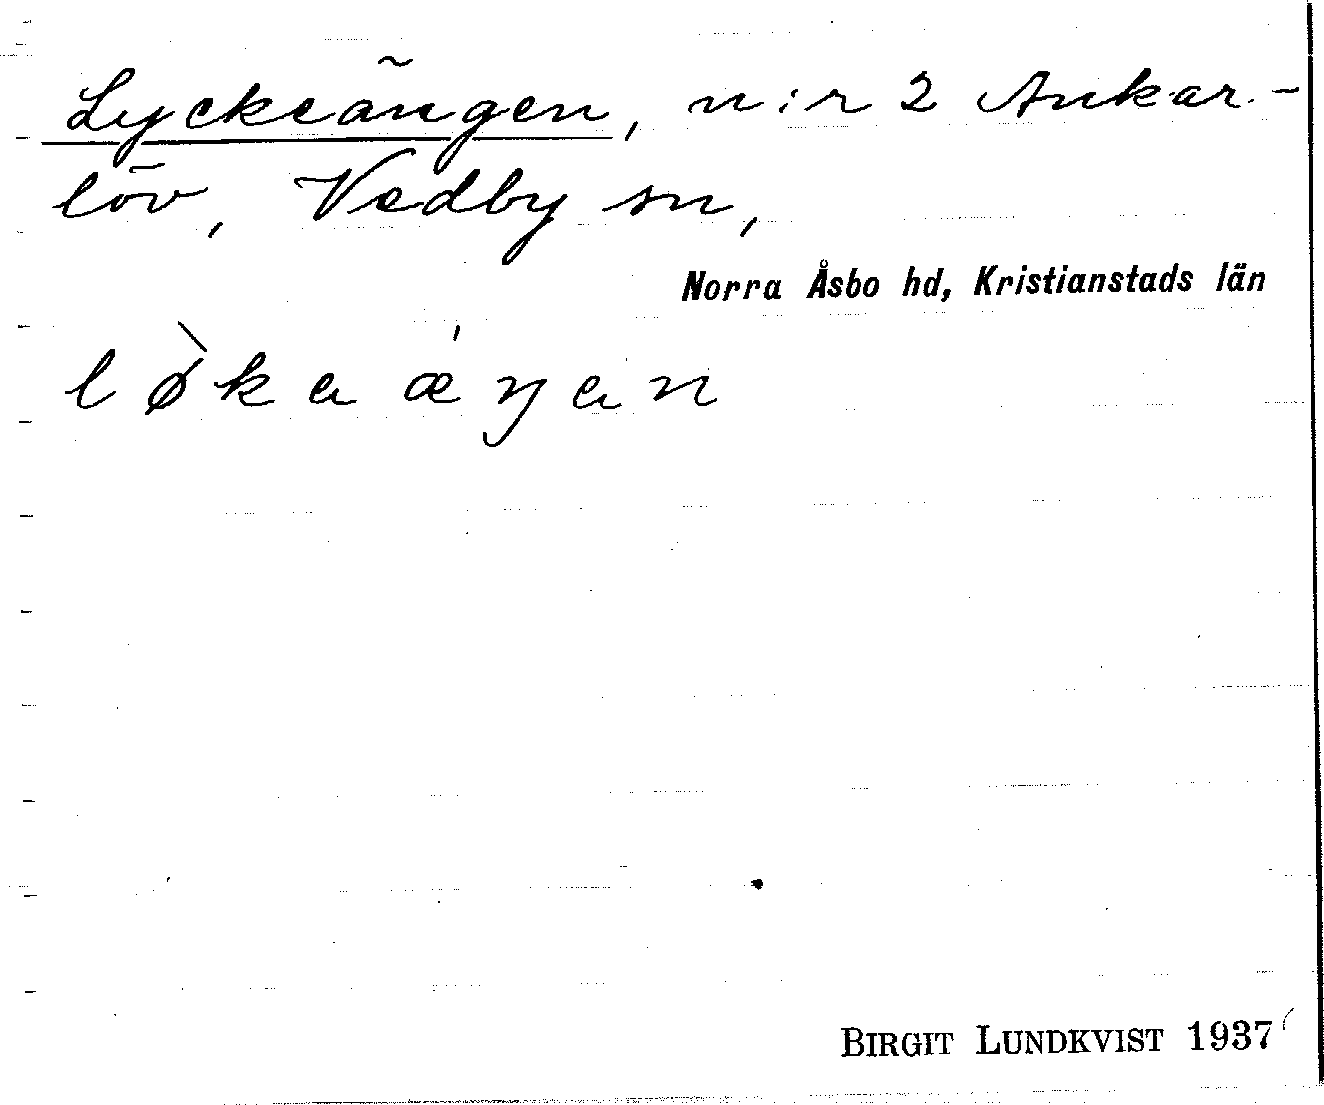 Lyckeängen, n:r 2 Ankar-
löv, Vedby sn,
Norra Åsbo hd, Kristianstads län
lø̀kaǽŋan
BIRGIT LUNDKVIST 1937